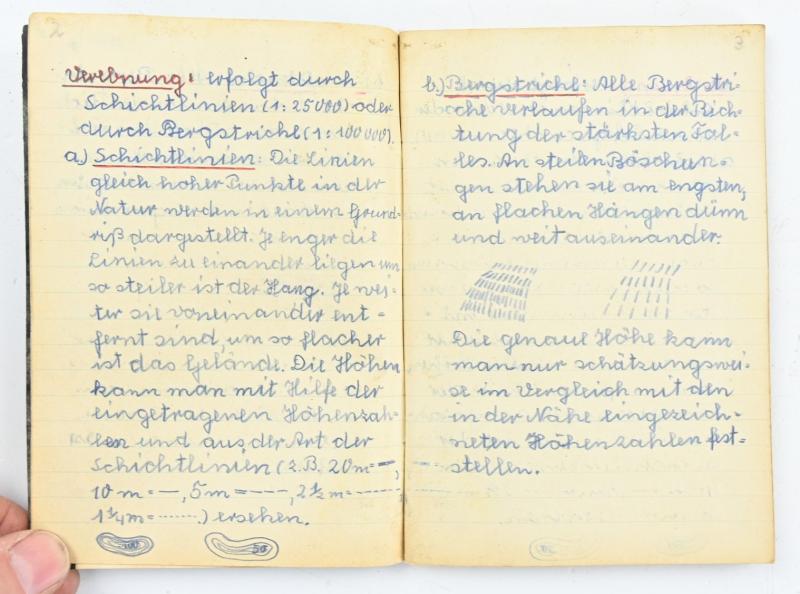 2
Verebnung: erfolgt durch
Schichtlinien (1:25000) oder
durch Bergstriche (1:100000).
a.) Schichtlinien: Die Linien
gleich hoher Punkte in der
Natur werden in einem Grund=
riß dargestellt. Je enger die
Linien zu einander liegen um
so steiler ist der Hang. Je wei-
ter sie voneinander ent=
fernt sind, um so flacher
ist das Gelände. Die Höhen
kann man mit Hilfe der
eingetragenen Höhenzah-
len und aus der Art der
Schichtlinien (z.B. 20m=—,
10m=—, 5m=----, 2½m=-----
1¼m=.......) ersehen.
100 50
3
b.) Bergstriche: Alle Bergstri-
che verlaufen in der Rich-
tung der stärksten Fal-
les. An steilen Böschun=
gen stehen sie am engsten,
an flachen Hängen dünn
und weit auseinander.
Die genaue Höhe kann
man nur schätzungswei-
se im Vergleich mit den
in der Nähe eingezeich-
neten Höhenzahlen fest=
stellen.